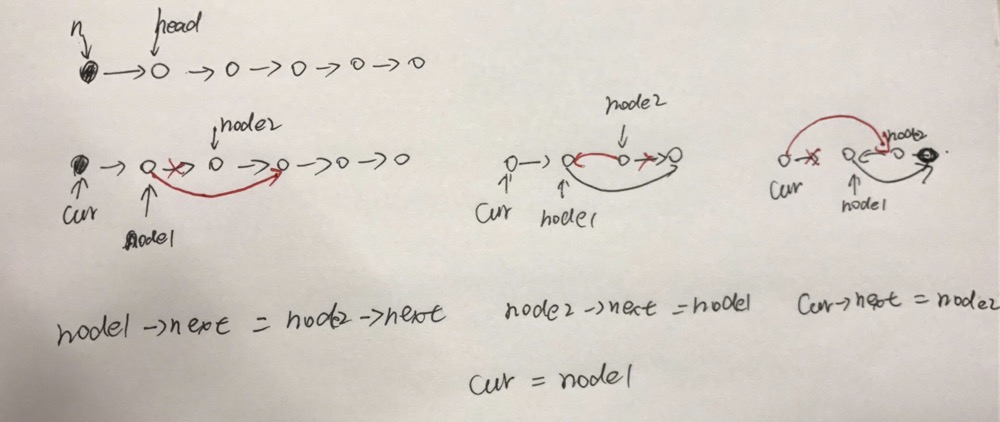 n head
node2
cur node1
node2
cur node1
node2
cur node1
node1->next = node2->next
node2->next = node1
cur->next = node2
cur = node1